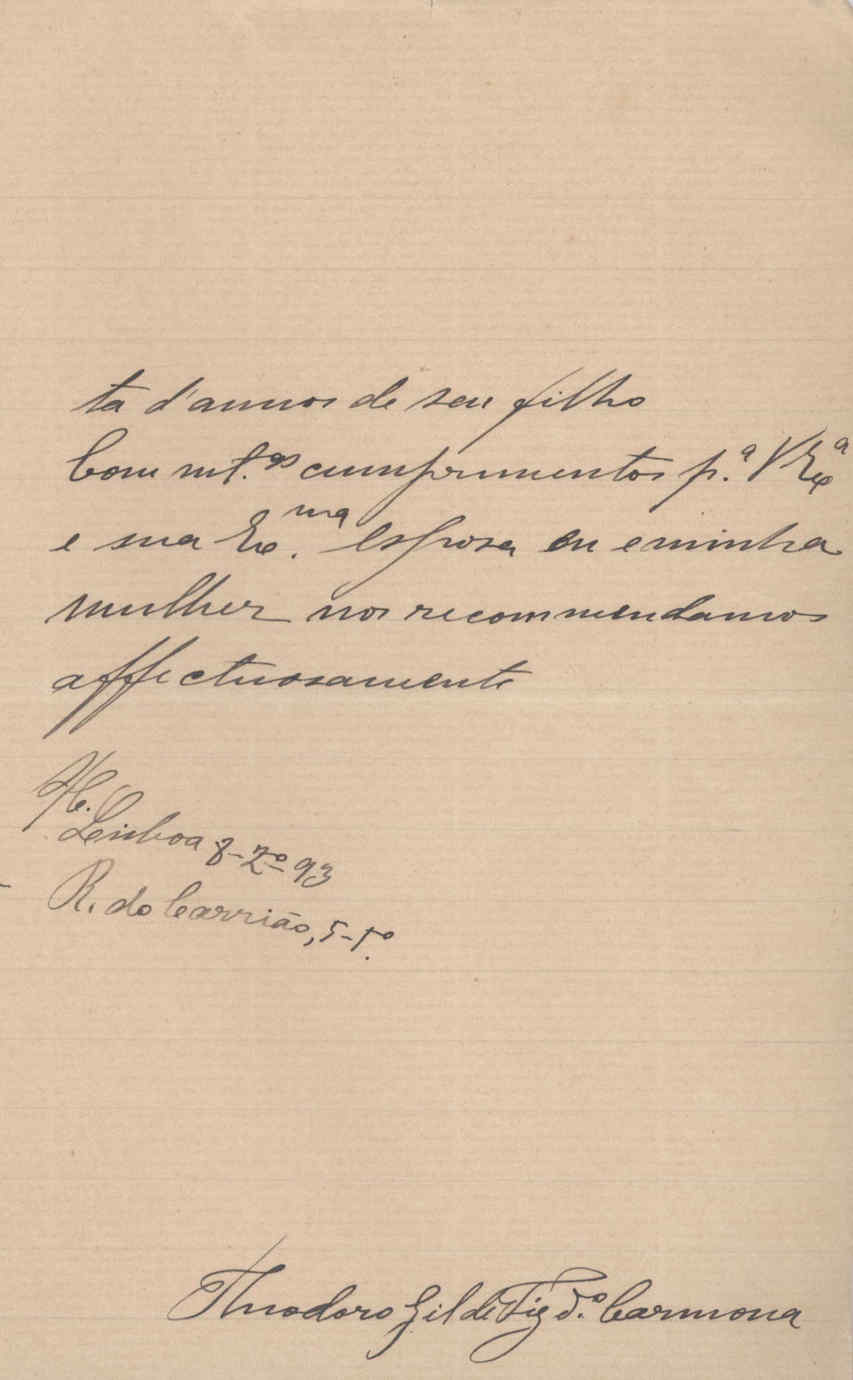 ta d'annos de seu filho
Com mt.os cumprimentos p.a V Exa
e sua Ex.ma Esposa eu e minha
mulher nos recommendamos
affectuosamente
Lisboa 8-2º-93
R. do Carrião, 5-1º.
Theodoro Gil de Figd.o Carmona